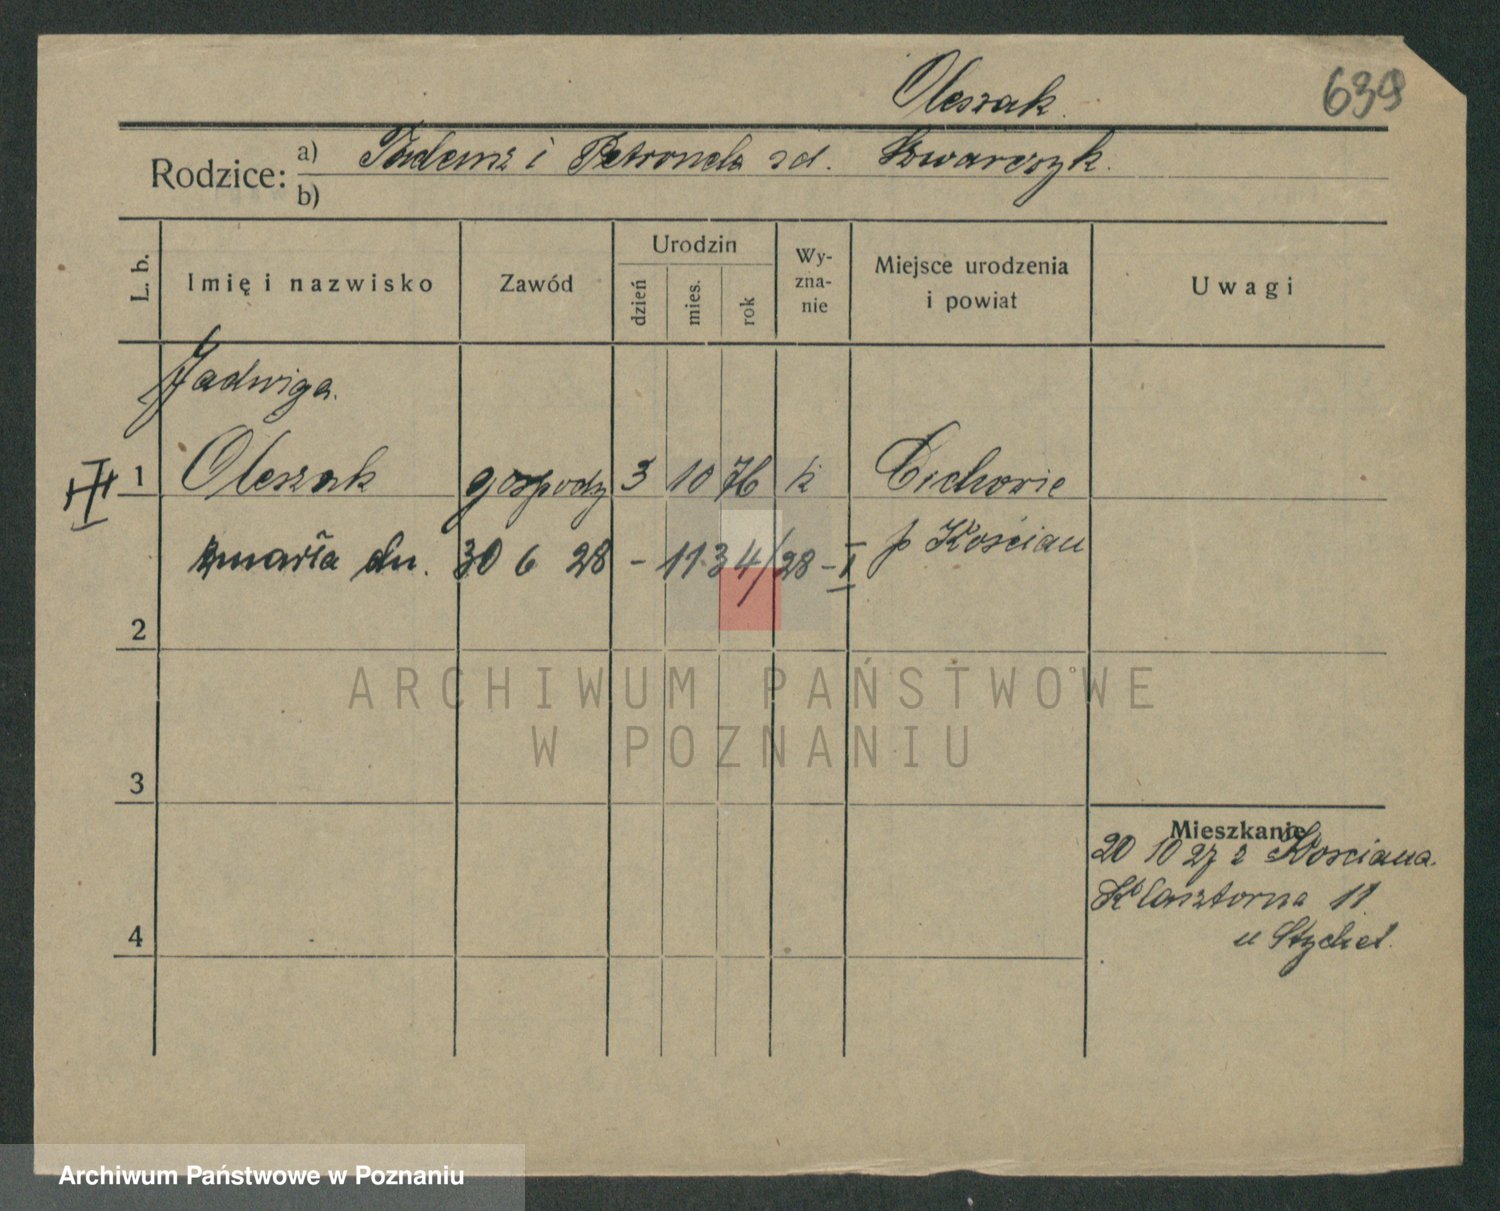 Oleszak.
639
Rodzice: a) Tadeusz i Petronela zd. Szwarczyk.
b)
L. b.
Imię i nazwisko
Zawód
Urodzin
dzień
mies.
rok
Wy-
zna-
nie
Miejsce urodzenia
i powiat
Uwagi
Jadwiga.
1 Oleszak gospody 3 10 76 k Cichowie
zmarła dn. 30 6 28 - 11.34/28 - I p Kościan
2
3
4
Mieszkanie
20 10 27 z Kościana.
Klasztorna 11
u Stychel.
ARCHIWUM PAŃSTWOWE
W POZNANIU
Archiwum Państwowe w Poznaniu